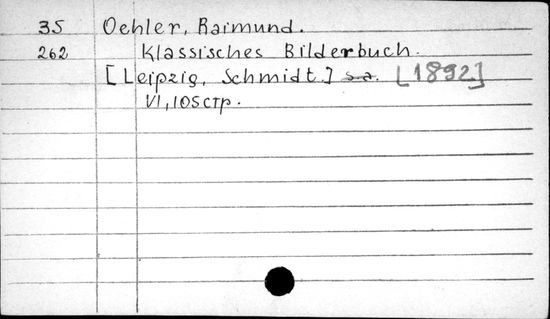 35 Oehler, Raimund.
262 Klassisches Bilderbuch.
[Leipzig, Schmidt.] s.a. [1892]
VI, 105 стр.